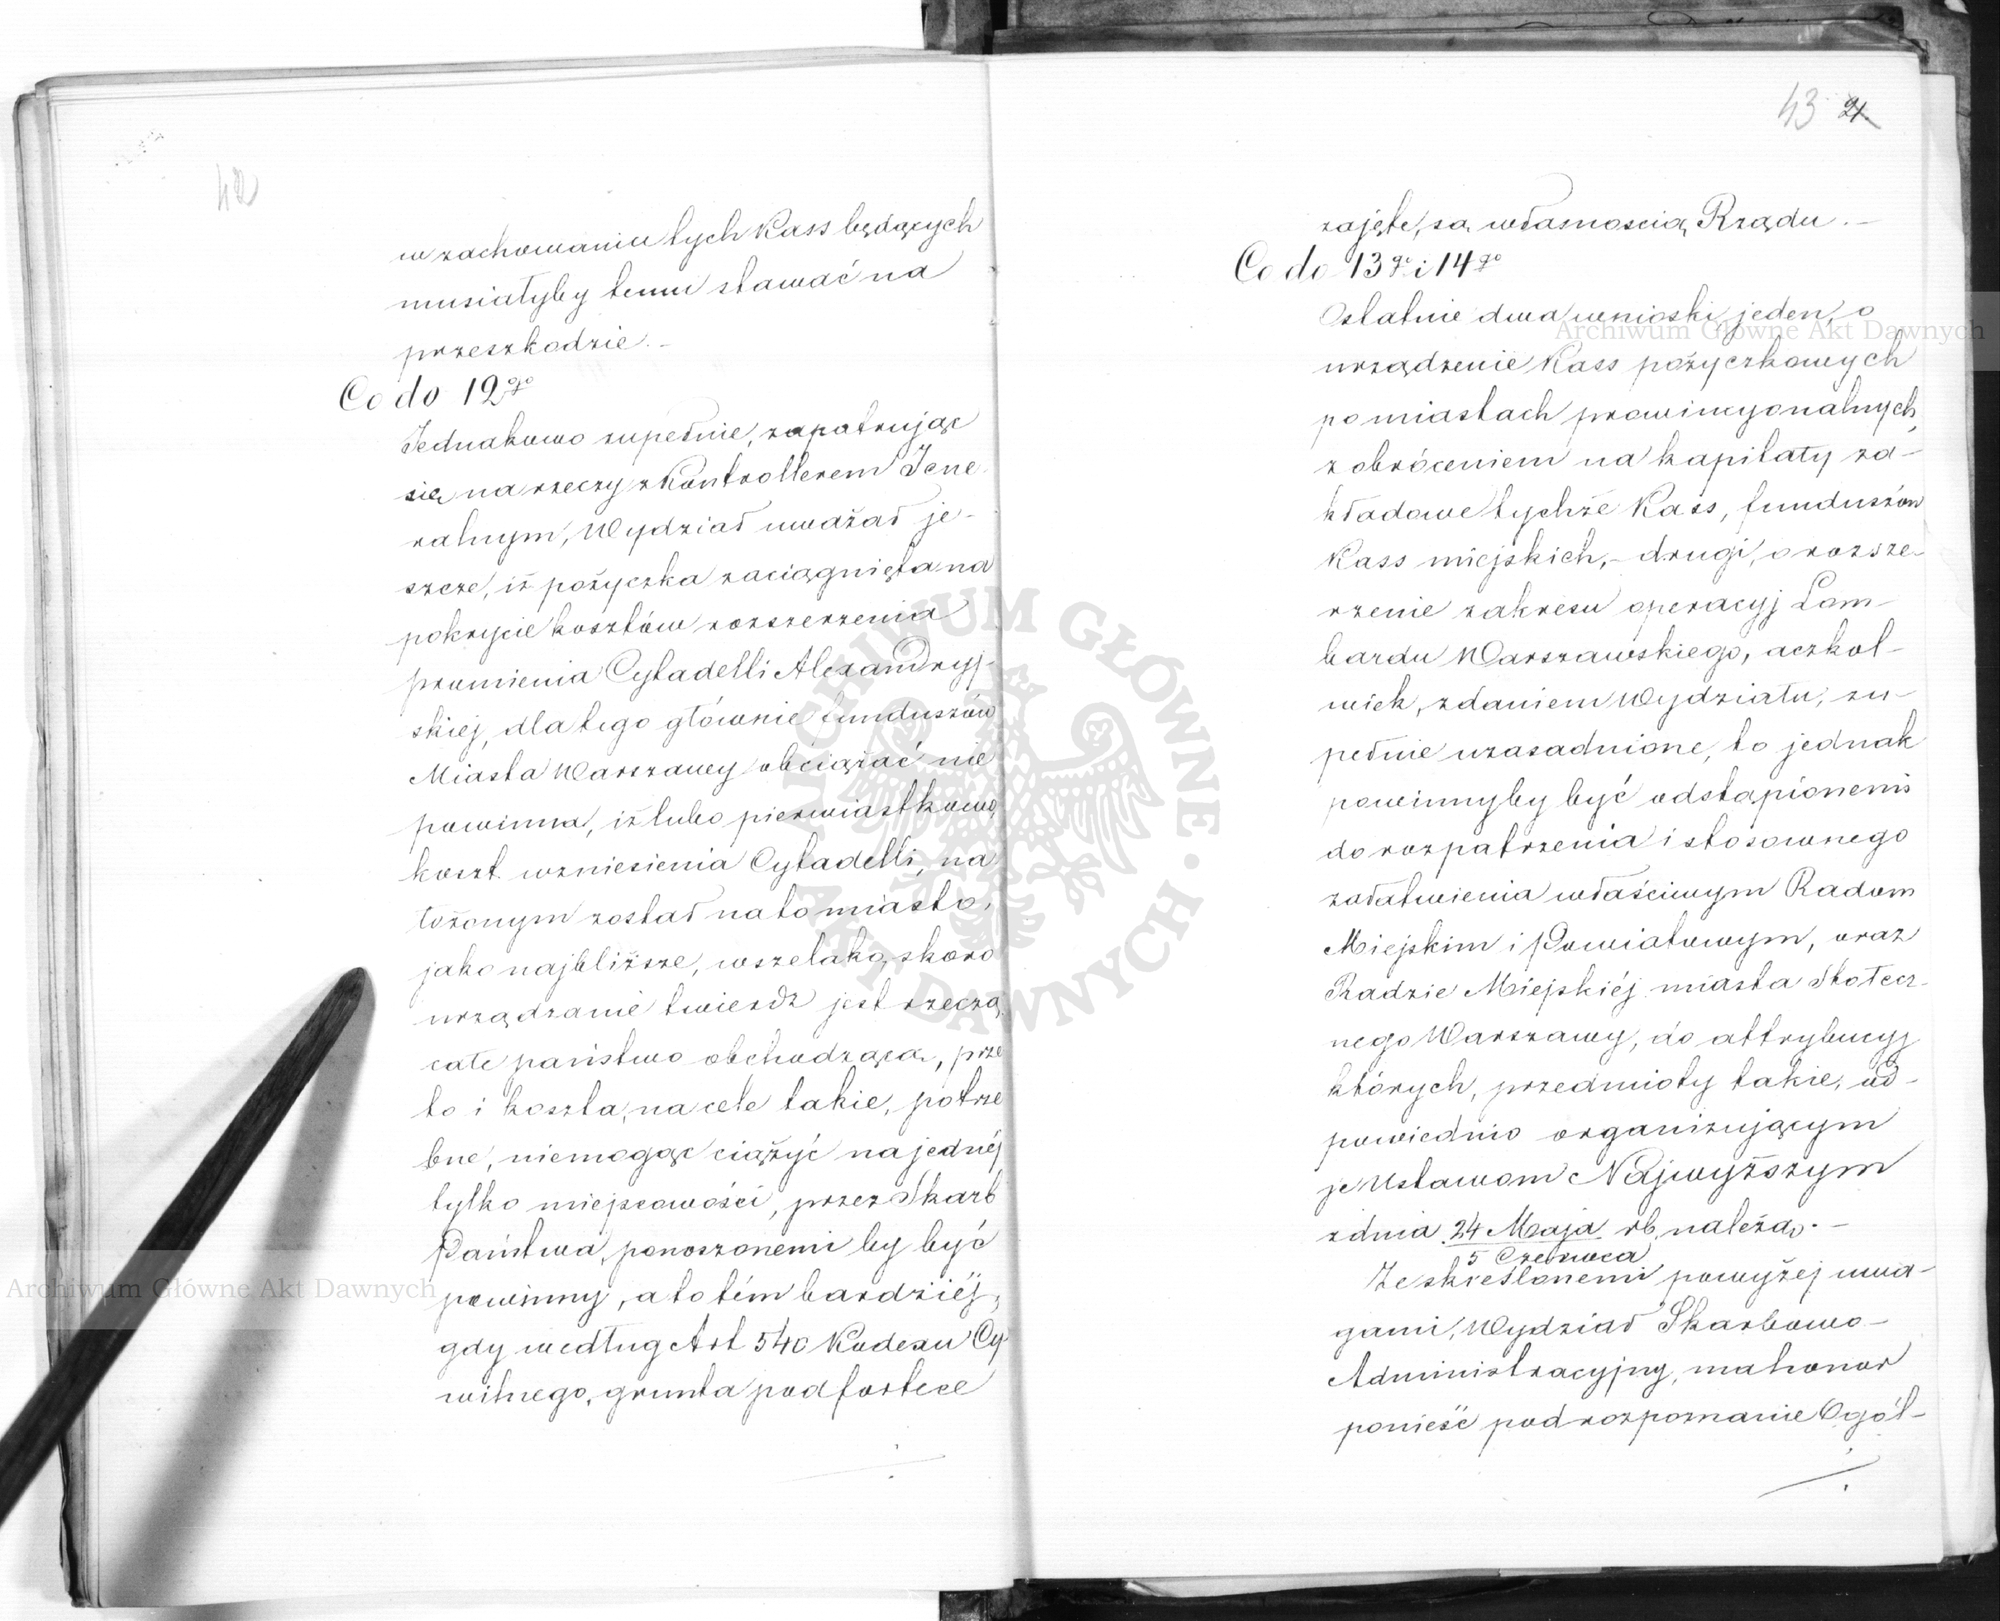 42
w zachowaniu tych Kass będących
musiałyby temu stawać na
przeszkodzie. -
Co do 12go
Jednakowo zupełnie, zapatrując
się na rzeczy z Kontrollerem Jene
ralnym, Wydział uważał je-
szcze, iż pożyczka zaciągnięta na
pokrycie kosztów rozszerzenia
promienia Cytadelli Alexandryj-
skiej, dla tego głównie funduszów
Miasta Warszawy obciążać nie
powinna, iż lubo pierwiastkowo
koszt wzniesienia Cytadelli, na
łożonym został na to miasto,
jako najbliższe, wszelako, skoro
urządzanie twierdz jest rzeczą
całe państwo obchodzącą, prze
to i koszta, na cele takie, potrze
bne, niemogąc ciążyć na jednéj
tylko miejscowości, przez Skarb
Państwa, ponoszonemi by być
powinny, a to tém bardziéj,
gdy według Art 540 Kodexu Cy
wilnego, grunta pod fortece
43 21
zajęte, są własnością Rządu. -
Co do 13go i 14go
Ostatnie dwa wnioski jeden, o
urządzenie Kass pożyczkowych
po miastach prowincyonalnych,
z obróceniem na kapitały za-
kładowe tychże Kass, funduszów
Kass miejskich, - drugi, o rozsze-
rzenie zakresu operacyj Lom-
bardu Warszawskiego, aczkol-
wiek, zdaniem Wydziału, zu-
pełnie uzasadnione, to jednak
powinnyby być odstąpionemi
do rozpatrzenia i stosownego
załatwienia właściwym Radom
Miejskim i Powiatowym, oraz
Radzie Miejskiéj miasta Stołecz-
nego Warszawy, do attrybucyj
których, przedmioty takie, od-
powiednio organizującym
je Ustawom Najwyższym
z dnia 24 Maja rb, należą. -
5 Czerwca
Ze skreślonemi powyżej uwa-
gami, Wydział Skarbowo-
Administracyjny, ma honor
ponieść pod rozpoznanie Ogól-
Archiwum Główne Akt Dawnych
Archiwum Główne Akt Dawnych
ARCHIWUM GŁÓWNE · AKT DAWNYCH ·